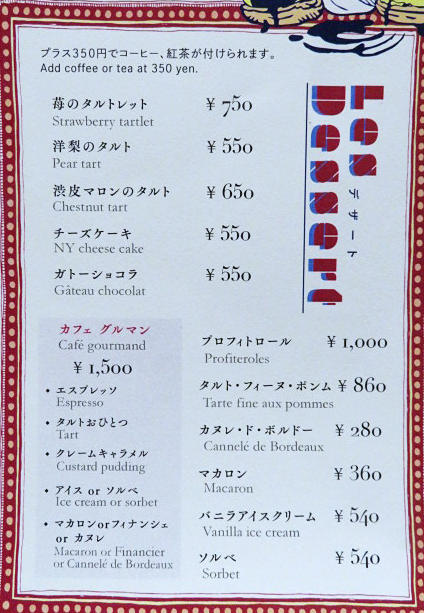 プラス350円でコーヒー、紅茶が付けられます。
Add coffee or tea at 350 yen.
Les Dessert
デザート
苺のタルトレット ¥ 750
Strawberry tartlet
洋梨のタルト ¥ 550
Pear tart
渋皮マロンのタルト ¥ 650
Chestnut tart
チーズケーキ ¥ 550
NY cheese cake
ガトーショコラ ¥ 550
Gâteau chocolat
カフェ グルマン
Café gourmand
¥ 1,500
• エスプレッソ
Espresso
• タルトおひとつ
Tart
• クレームキャラメル
Custard pudding
• アイス or ソルベ
Ice cream or sorbet
• マカロンorフィナンシェ
or カヌレ
Macaron or Financier
or Cannelé de Bordeaux
プロフィトロール ¥ 1,000
Profiteroles
タルト・フィーヌ・ポンム ¥ 860
Tarte fine aux pommes
カヌレ・ド・ボルドー ¥ 280
Cannelé de Bordeaux
マカロン ¥ 360
Macaron
バニラアイスクリーム ¥ 540
Vanilla ice cream
ソルベ ¥ 540
Sorbet